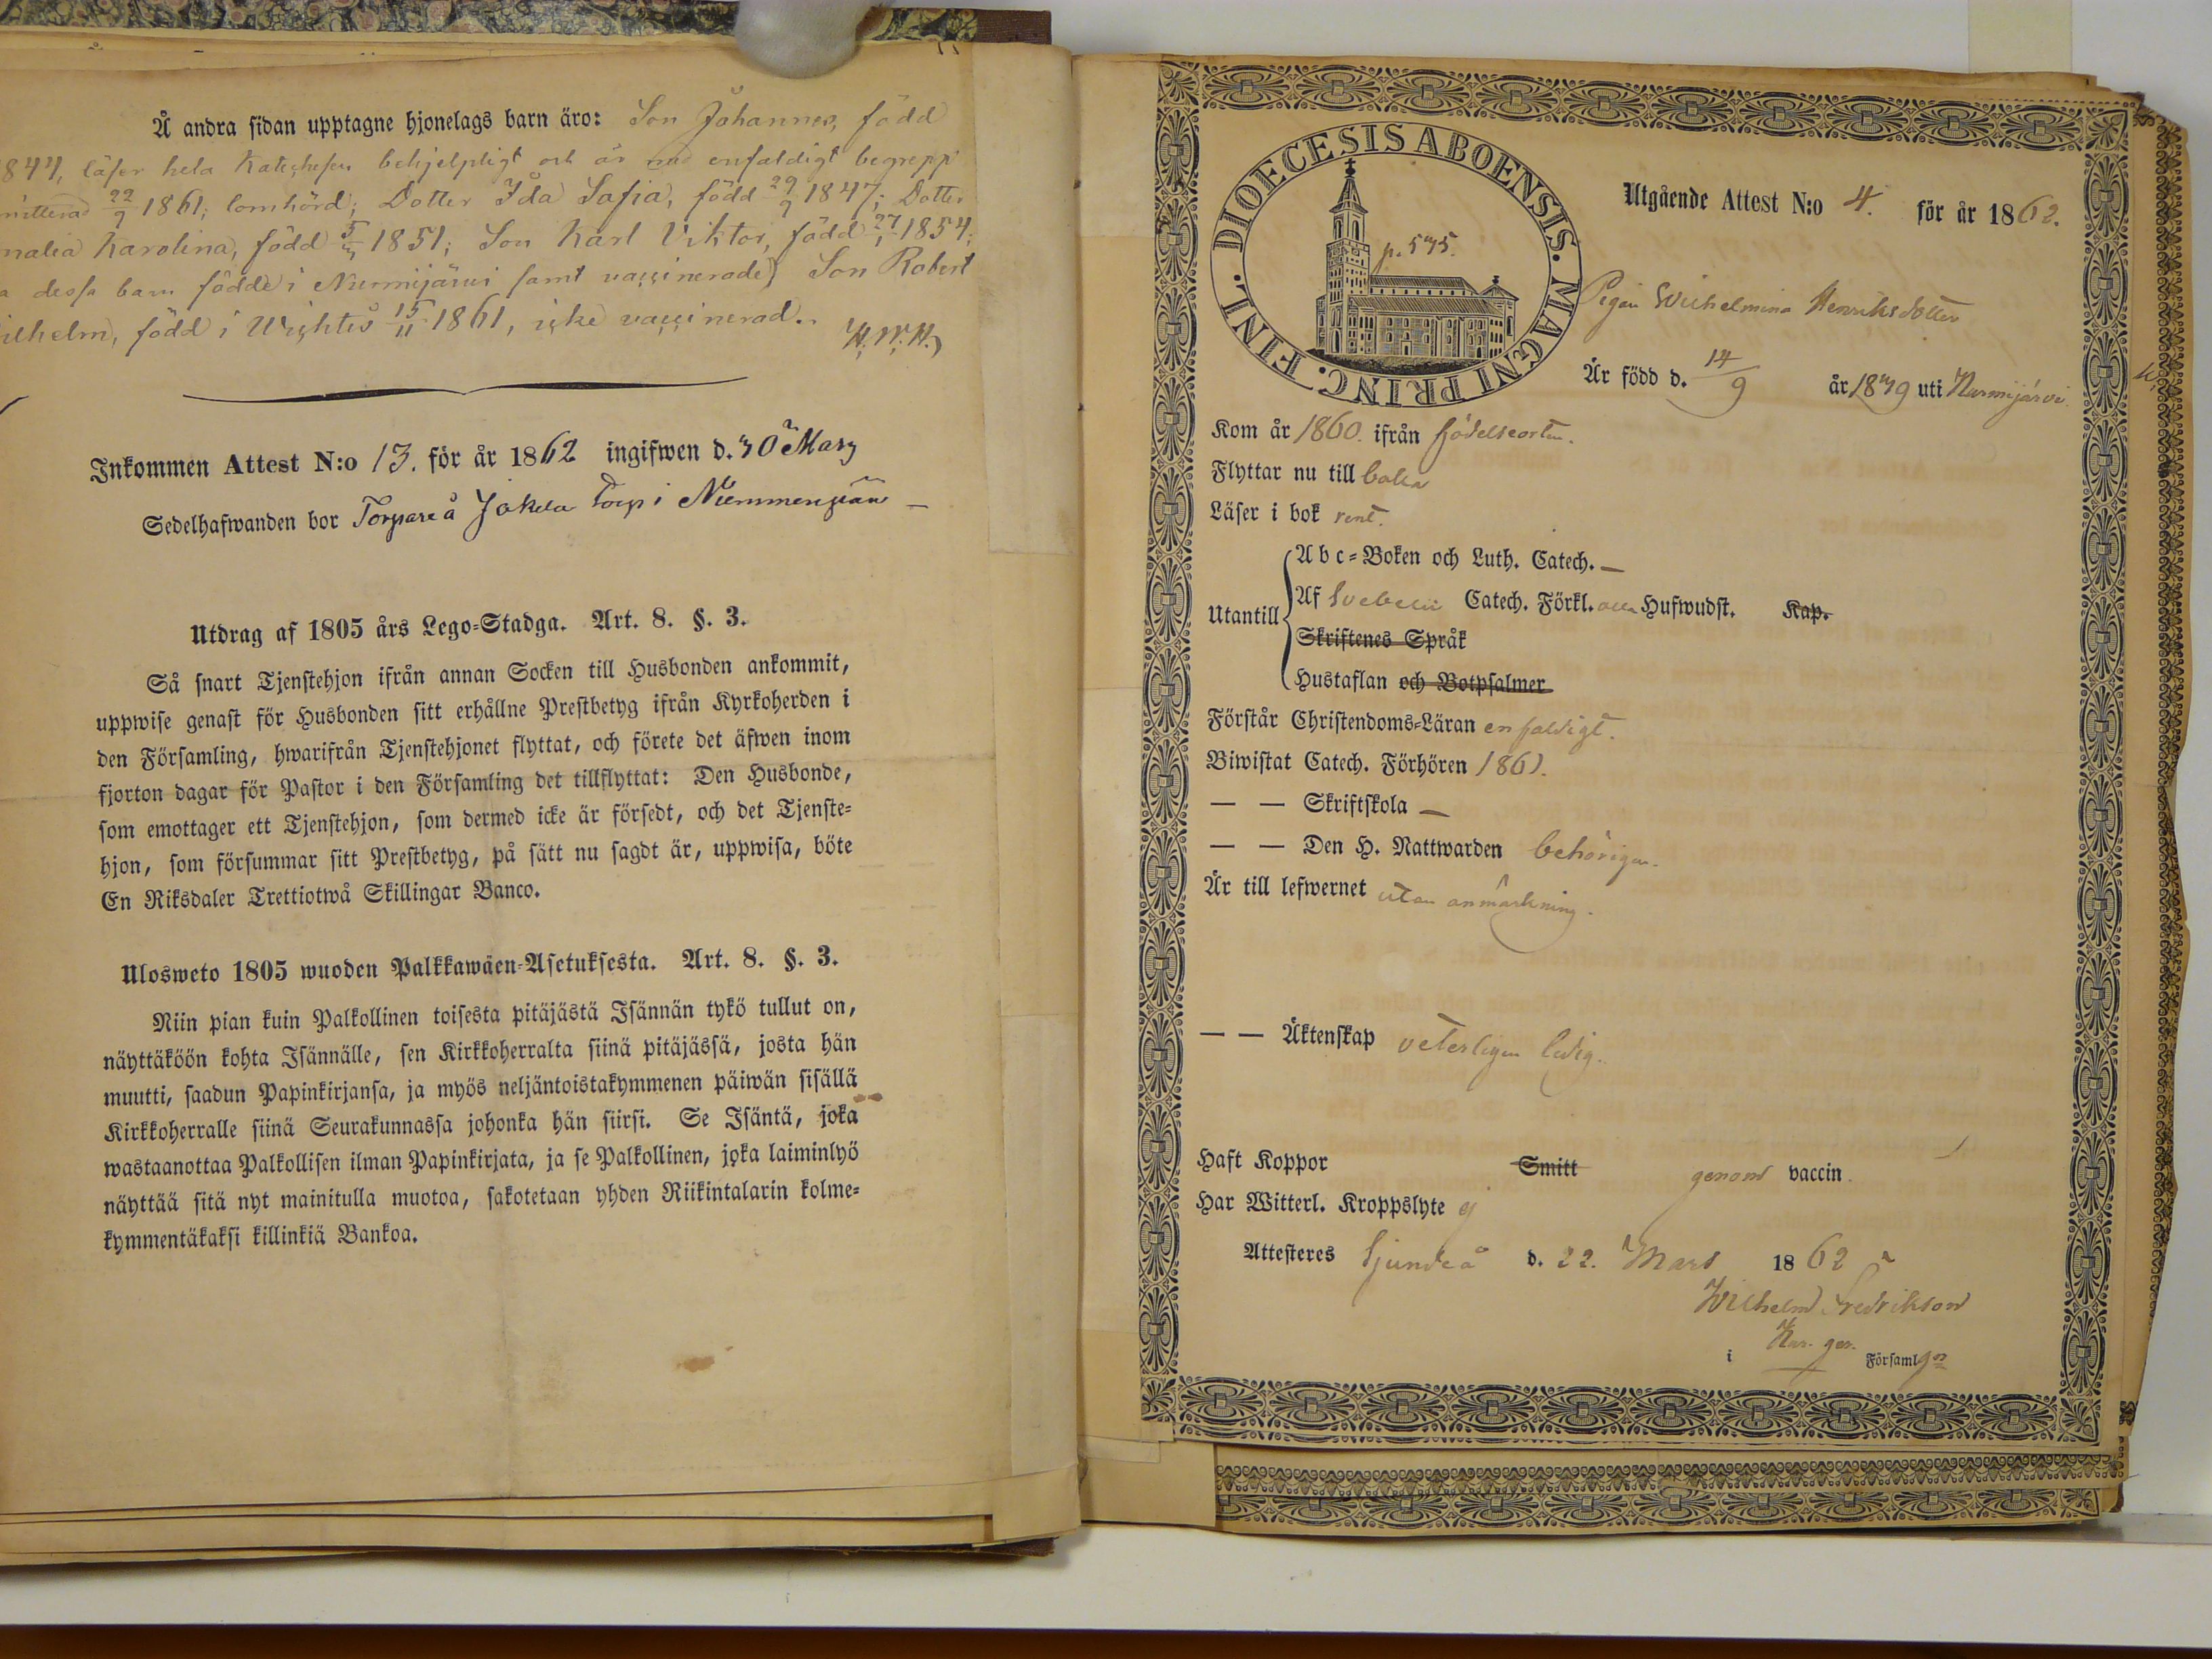 Å andra sidan upptagne hjonelags barn äro: Son Johannes, född
1844, läser hela Katechesen behjelpligt och är med enfaldigt begrepp
22/9 1861; lomhörd; Dotter Ida Safia, född 29/9 1847; Dotter
Karolina, född 1851; Son Karl Viktor, född 27/1 1854;
dessa barn födde i Nurmijärvi samt vaccinerade) Son Robert
ilhelm, född i Wichtis 15/11 1861, icke vaccinerad.
Inkommen Attest N:o 13. för år 1862 ingifwen d. 30 Mars
Sedelhafwanden bor Torpare å Jokela torp i Nummenpää
Utdrag af 1805 års Lego-Stadga. Art. 8. §. 3.
Så snart Tjenstehjon ifrån annan Socken till Husbonden ankommit,
uppwise genast för Husbonden sitt erhållne Prestbetyg ifrån Kyrkoherden i
den Församling, hwarifrån Tjenstehjonet flyttat, och förete det äfwen inom
fjorton dagar för Pastor i den Församling det tillflyttat: Den Husbonde,
som emottager ett Tjenstehjon, som dermed icke är försedt, och det Tjenste-
hjon, som försummar sitt Prestbetyg, på sätt nu sagdt är, uppwisa, böte
En Riksdaler Trettiotwå Skillingar Banco.
Ulosweto 1805 wuoden Palkkawäen-Asetuksesta. Art. 8. §. 3.
Niin pian kuin Palkollinen toisesta pitäjästä Isännän tykö tullut on,
näyttäköön kohta Isännälle, sen Kirkkoherralta siinä pitäjässä, josta hän
muutti, saadun Papinkirjansa, ja myös neljäntoistakymmenen päiwän sisällä
Kirkkoherralle siinä Seurakunnassa johonka hän siirsi. Se Isäntä, joka
wastaanottaa Palkollisen ilman Papinkirjata, ja se Palkollinen, joka laiminlyö
näyttää sitä nyt mainitulla muotoa, sakotetaan yhden Riikintalarin kolme-
kymmentäkaksi killinkiä Bankoa.
DIOECESIS ABOENSIS. MAGNI PRINC. FINL.
p. 575.
Utgående Attest N:o 4. för år 1862.
Pigan Wilhelmina Henriksdotter
Är född d. 14/9 år 1839 uti Nurmijärvi.
Kom år 1860. ifrån födelseorten.
Flyttar nu till
Läser i bok rent.
Utantill
Abc-Boken och Luth. Catech. —
Af Svebelii Catech. Förkl. alla Hufwudst. Kap.
Skriftenes Språk
Hustaflan och Botpsalmer
Förstår Christendoms-Läran enfaldigt.
Biwistat Catech. Förhören 1861.
— — Skriftskola —
— — Den H. Nattwarden behörigen.
Är till lefwernet utan anmärkning.
— — Äktenskap veterligen ledig.
Haft Koppor Smitt genom vaccin.
Har Witterl. Kroppslyte ej
Attesteres Sjundeå d. 22. Mars 1862
Wilhelm Fredrikson
i Församlgn